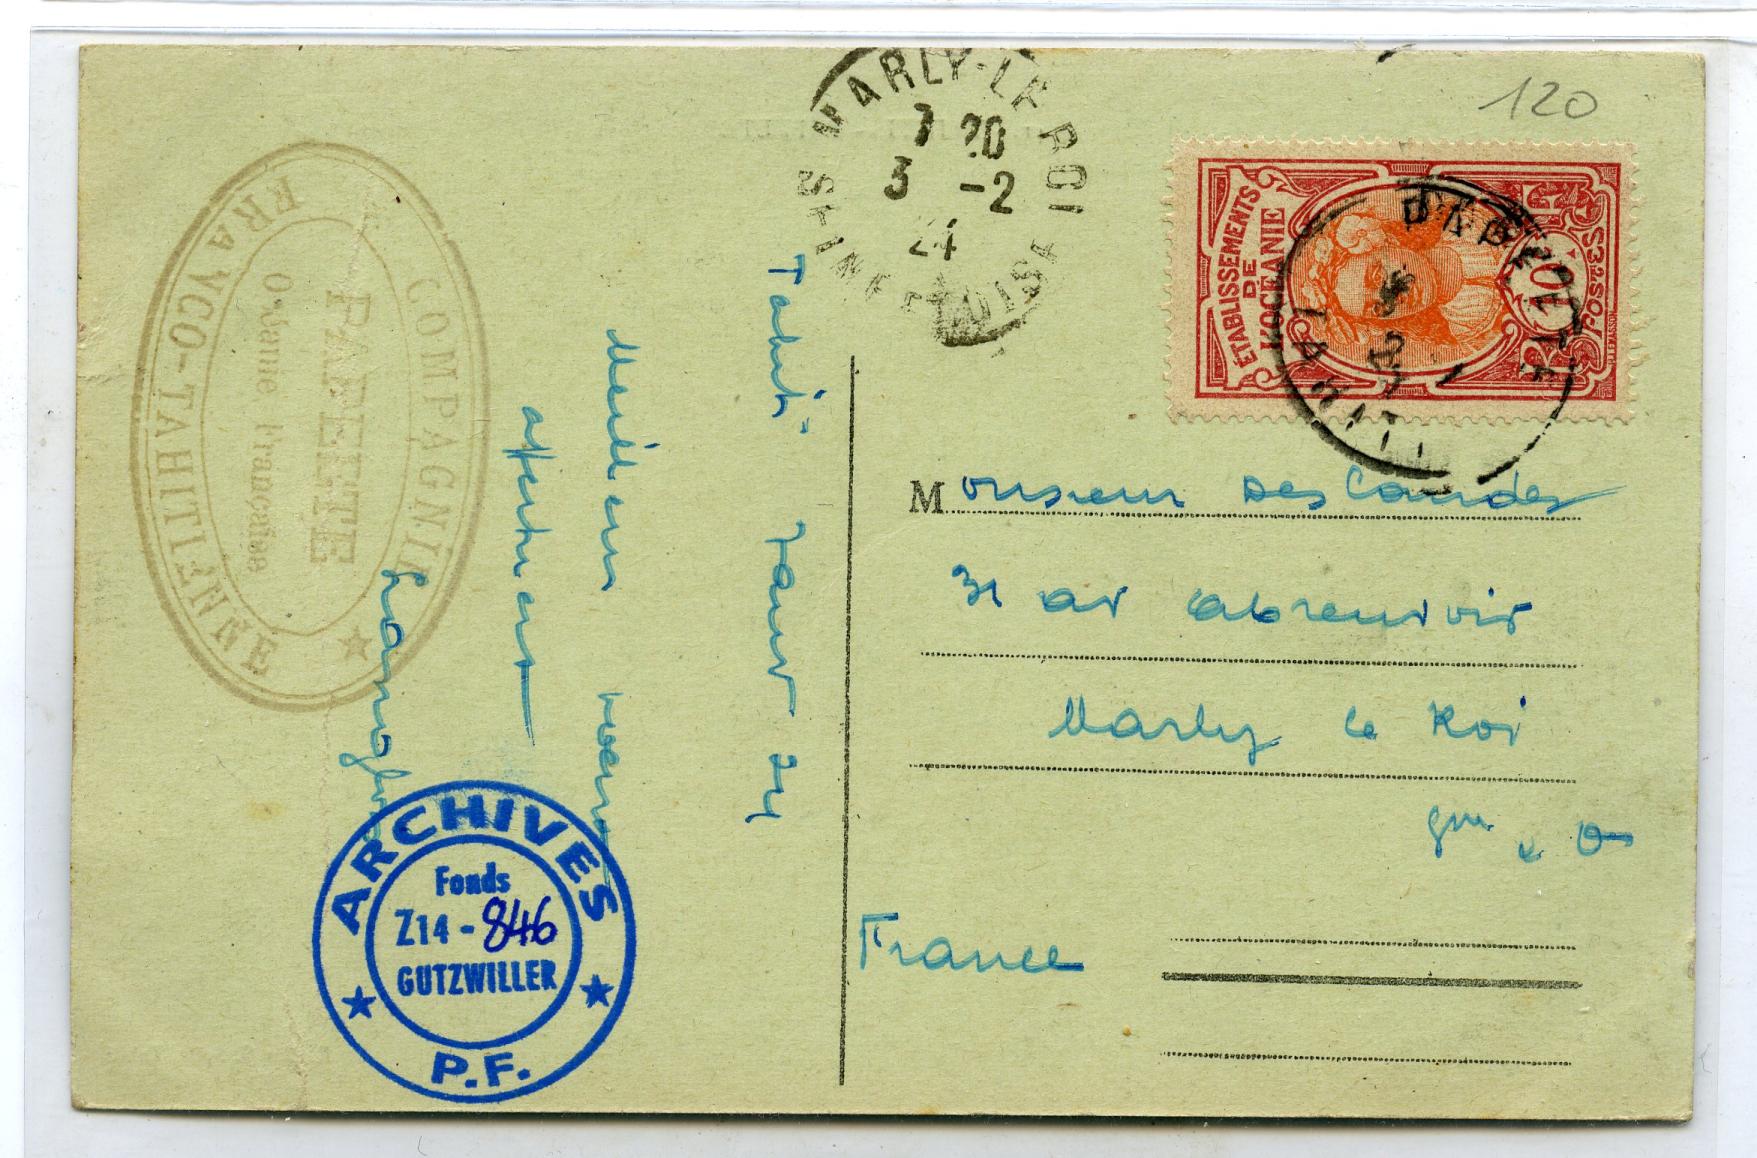 120
MARLY-LE ROI
7 20
3 -2
24
SEINE ET OISE
ÉTABLISSEMENTS
DE
L'OCÉANIE
10c
POSTES
PAPEETE
TAHITI
COMPAGNIE
FRANCO-TAHITIENNE
PAPEETE
Océanie Française
Tahiti - Janv 24
Meilleurs voeux
affectueux
Monsieur Des Landes
31 av abreuvoir
Marly le Roi
France
ARCHIVES
Fonds
Z14 - 846
GUTZWILLER
P.F.